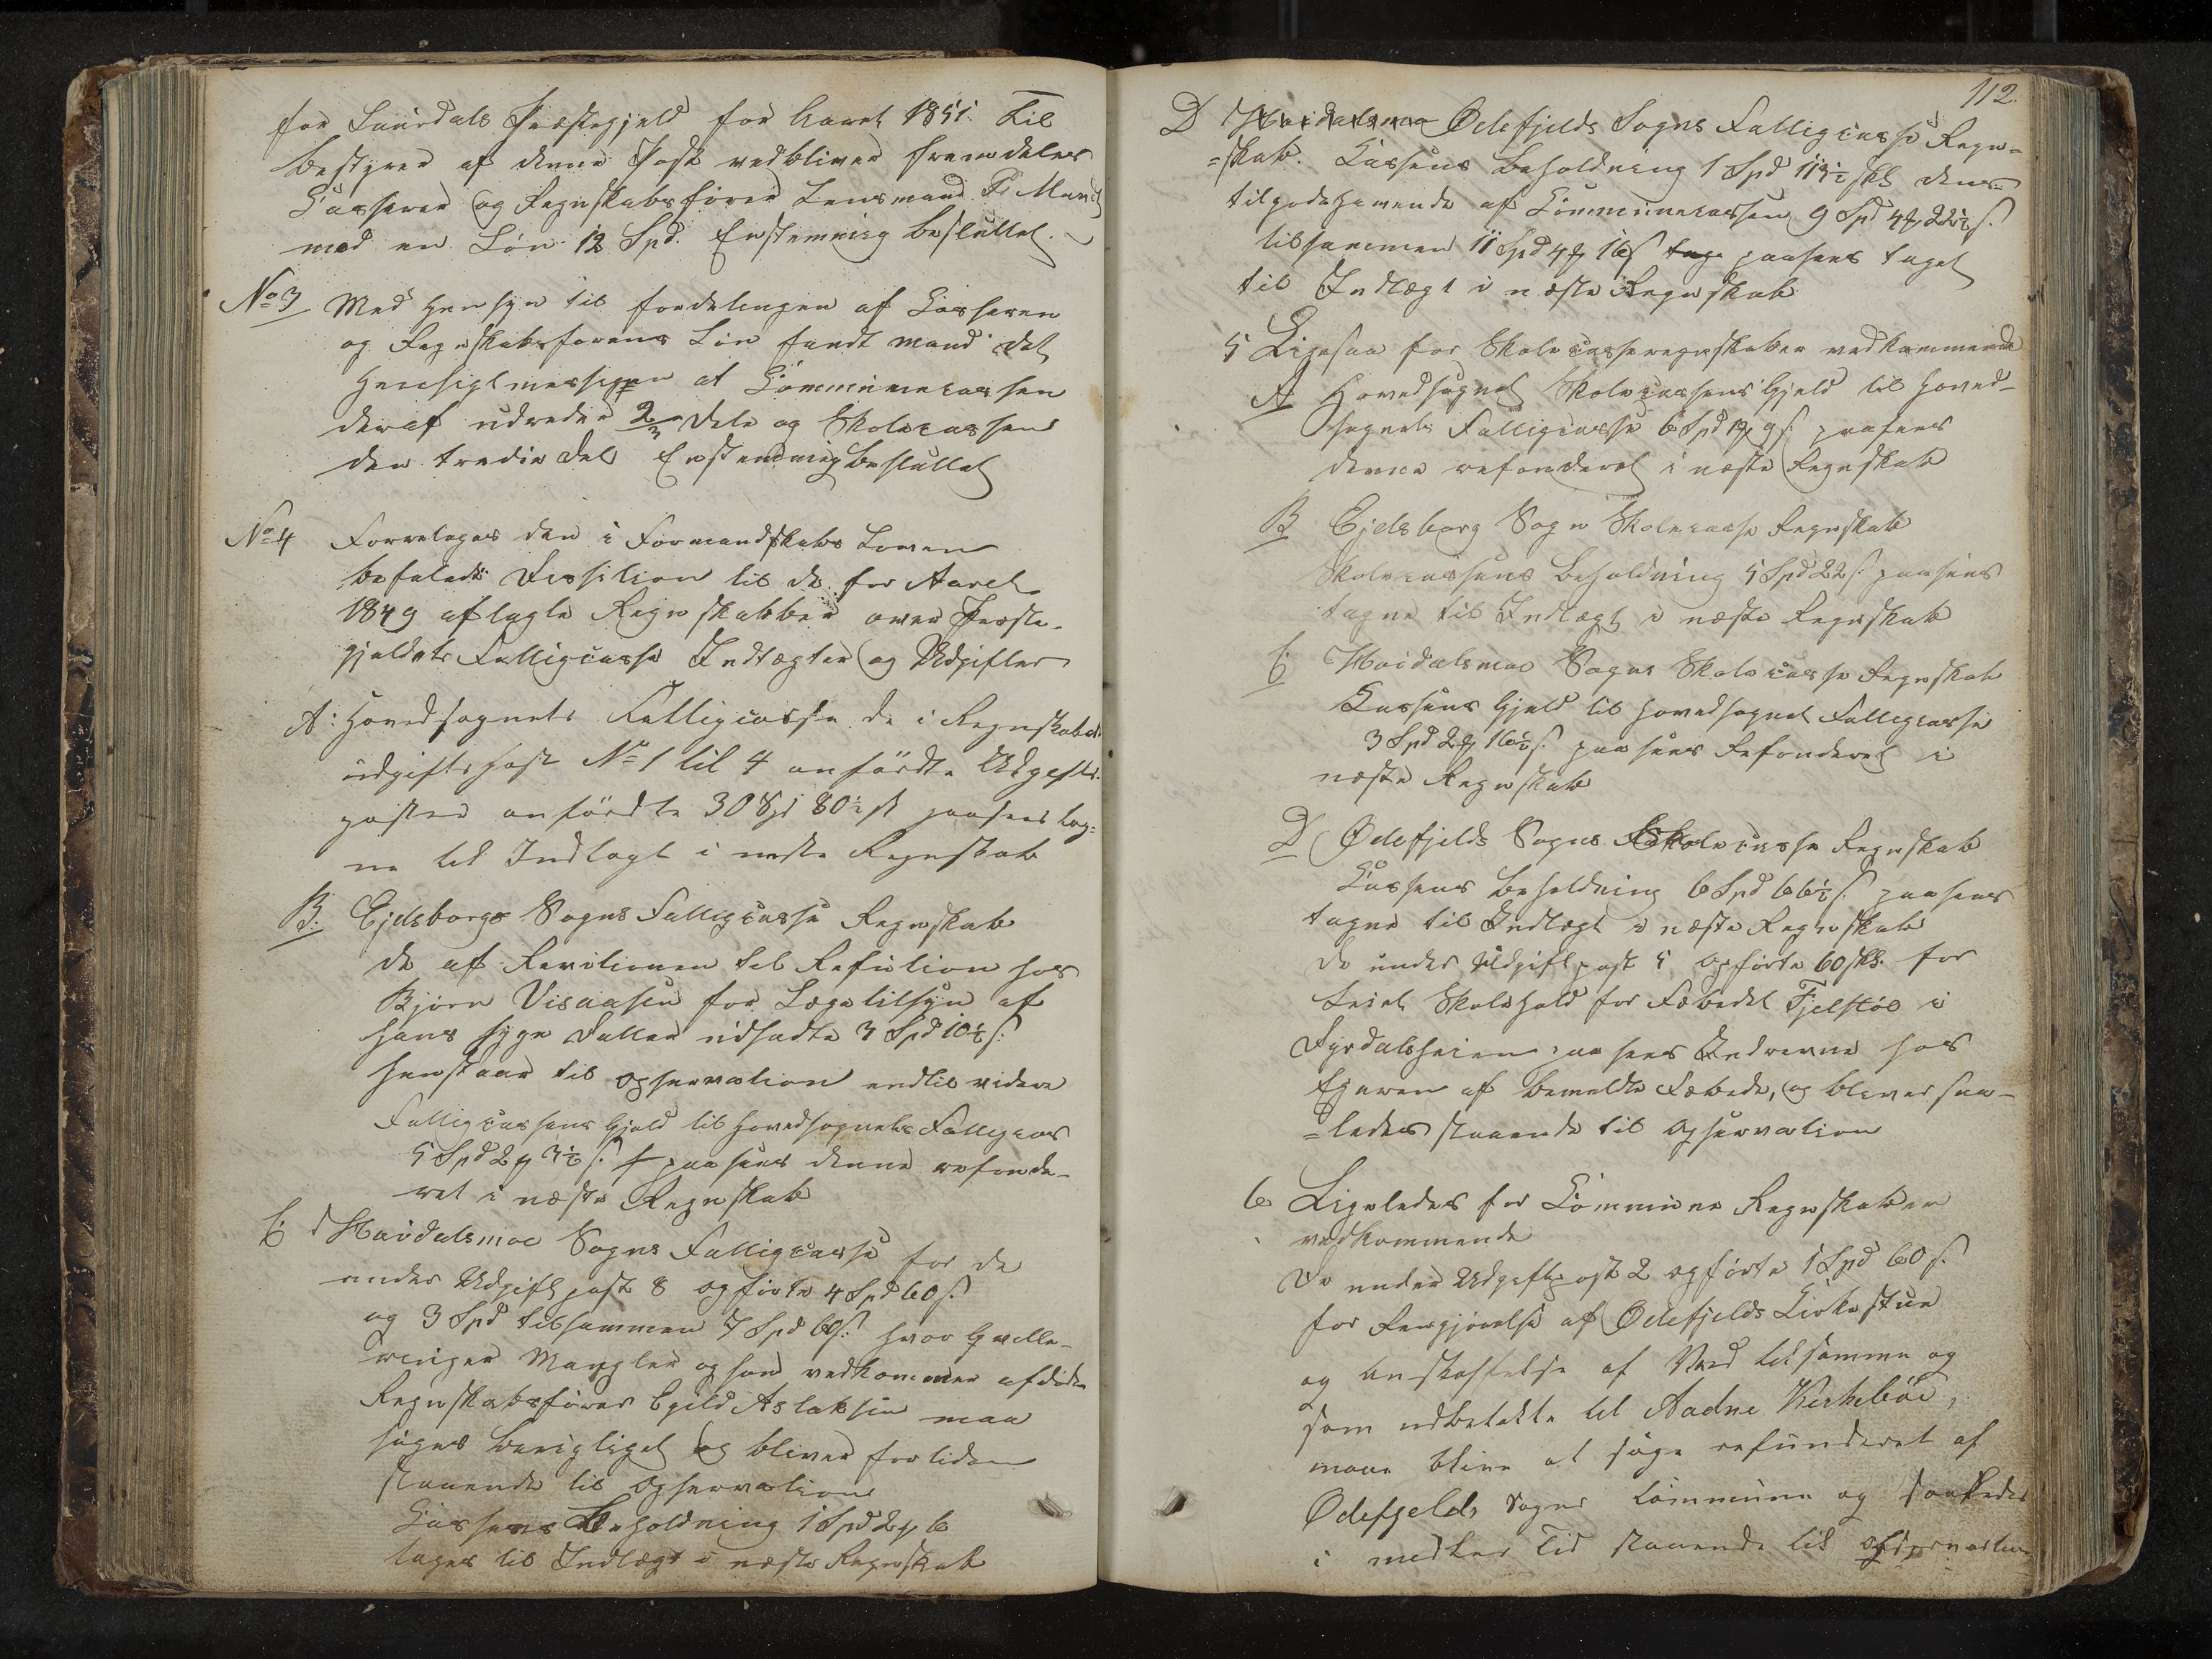 for Laurdals Præstegjeld for Aaret 1851. Til
bestyrer af denne Post vedbliver fremdeles
Casserer og Regnskabsfører Lensmand
med en Løn 12 Spd. Enstemmig besluttet.
No 3 Med Hensyn til fordelingen af Casseren
og Regnskabsførens Løn fandt mand det
Hensigtmessigen at Communecassen
deraf udreder 2/3 Dele og Skolecassen
den tredie Del Enstemmig besluttet
No 4 Foretages den i Formandskabs Loven
befalede Decision til de for Aaret
1849 aflagte Regnskabber over Preste-
gjeldets Fattigcasse Indtægter og Udgifter
A: Hovedsognets Fattigcasse de i Regnskabets
udgiftspost No 1 til 4 anførdte Udgifts-
poster anførdte 30 Spd 80½ s paasees tag-
ne til Indtagt i neste Regnskab
B: Ejdsborgs Sogns Fattigcasse Regnskab
de af Revisionen til Refution hos
Bjørn Visaasen for Lægetilsyn af
hans syge Datter udsadte 3 Spd 10½ s.
henstaar til opservation indtil videre
Fattigcassens Gjeld til Hovedsognets Fattigcas
5 Spd 2 ort 3½ s. paasees denne refunde-
ret i næste Regnskab
C Høidalsmoe Sogns Fattigcasse for de
under Udgiftpost 8 opførte 4 Spd 60 s.
og 3 Spd tilsammen 7 Spd 60 s. hvor Qvitte-
ringer Mangler og som vedkommer afdøde
Regnskabsfører Egild Aslaksen maa
søges berigtiget og bliver fortiden
staaende til opservation
Cassens Beholdning 1 Spd 2 ort 6
tages til Indtægt i næste Regnskab
112.
D Høidalsmoe Ødefjelds Sogns Fattigcasse Regn-
=skab. Cassens Beholdning 1 Spd 113½ sk dens
tilgodehavende af Communecassen 9 Spd 4 ort 22½ s.
tilsammen 11 Spd 4 ort 16 s tage paasees taget
til Indtægt i næste Regnskab
5 Ligesaa for Skolecasseregnskaber vedkommende
A Hovedsognet Skolecassens Gjeld til Hoved-
sognets Fattigcasse 6 Spd 9 s. paasees
denne refunderet i næste Regnskab
B Ejdsborg Sogn Skolecasse Regnskab
Skolecassens Beholdning 5 Spd 22 s. paasees
tagne til Indtægt i næste Regnskab
C Høidalsmoe Sogns Skolecasse Regnskab
Cassens Gjeld til Hovedsognet Fattigcasse
3 Spd 2 ort 16½ s. paasees Refunderet i
næste Regnskab
D Ødefjelds Sogns Skolecasse Regnskab
Cassens Beholdning 6 Spd 66½ s. paasees
tagne til Indtægt i næste Regnskab
De under Udgiftpost 5 opførte 60 sks. for
Skolehold for Læbedet Fjelstøe i
Fyrdalsheien paasees Inddrevne hos
Ejeren af bemeldte Læbede, og bliver saa-
=ledes staaende til opservation
6 Ligeledes for Commune Regnskaber
vedkommende
De under Udgiftpost 2 opførte 1 Spd 60 s.
for Rengjørelse af Ødefjelds Kirkestue
og Anskaffelse af Ved til samme og
som udbetalte til Aadne Kirkebøe,
maae blive at søge refunderet af
Ødefjelds Sogns Commune og saaledes
i midler Tid staaende til opservation